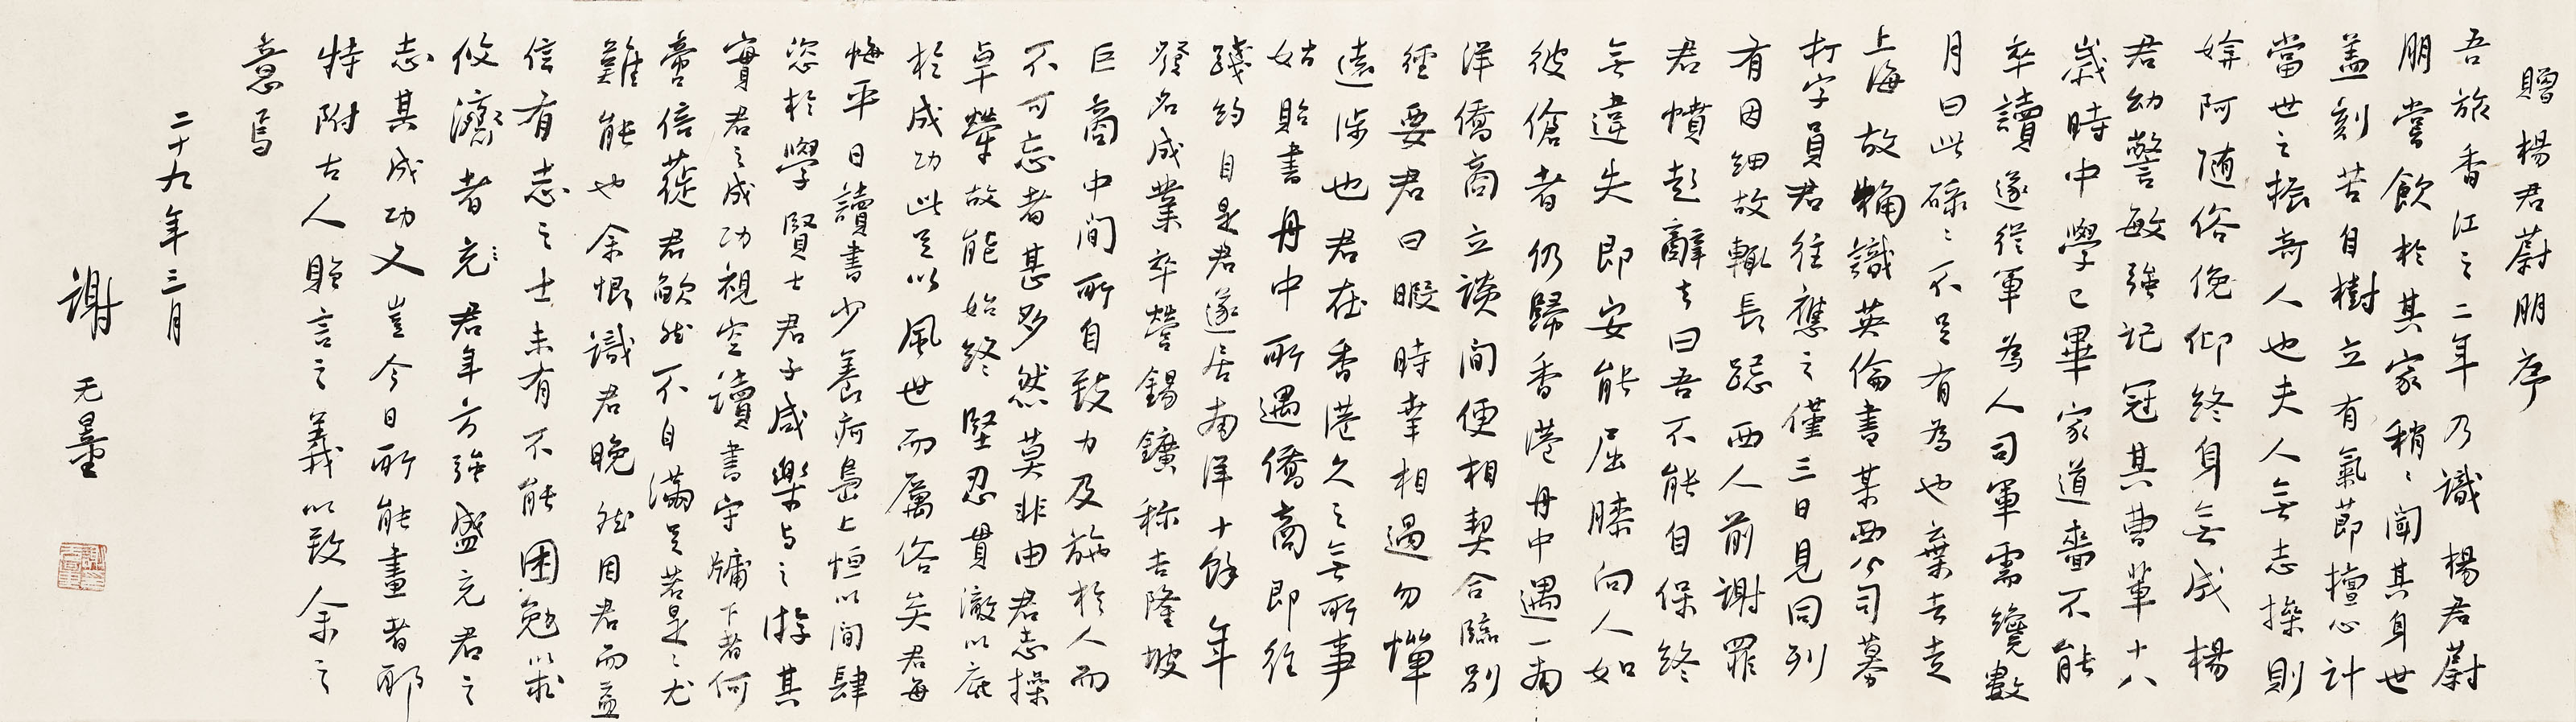 贈楊君蔚朋序
吾旅香江之二年乃識楊君蔚
朋嘗飲於其家稍〻聞其身世
盖刻苦自樹立有氣節擅心計
當世之振奇人也夫人無志操則
媕阿随俗俛仰終身無成楊
君幼警敏強記冠其曹輩十八
歲時中學已畢家道嗇不能
卒讀遂從軍為人司軍需纔數
月曰此碌〻不足有為也棄去走
上海故輪識英倫書某西公司募
打字員君往應之僅三日見同列
有因細故輒長跽西人前謝罪
君憤起辭去曰吾不能自保終
無違失即安能屈膝向人如
彼傖者仍歸香港舟中遇一南
洋僑商立談間便相契合臨別
徑要君曰暇時幸相過勿憚
遠涉也君在香港久之無所事
姑貽書舟中所遇僑商即往
踐約自是君遂居南洋十餘年
發名成業卒營錫鑛称吉隆坡
巨商中間所自致力及施於人而
不可忘者甚多然莫非由君志操
卓犖故能始終堅忍貫澈以底
於成功此足以風世而厲俗矣君每
悔平日讀書少養疴島上恒以間肆
恣於學賢士君子咸樂与之游其
實君之成功視空讀書守牖下者何
啻倍蓰君欿然不自滿足若是〻尤
難能也余恨識君晚然因君而益
信有志之士未有不能困勉以求
攸濟者〻充君年方強盛充君之
志其成功又豈今日所能畫者耶
特附古人贈言之義以致余之
意焉
二十九年三月
謝无量